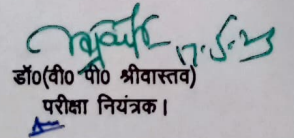 17.5.23
डॉ0(वी0 पी0 श्रीवास्तव)
परीक्षा नियंत्रक।